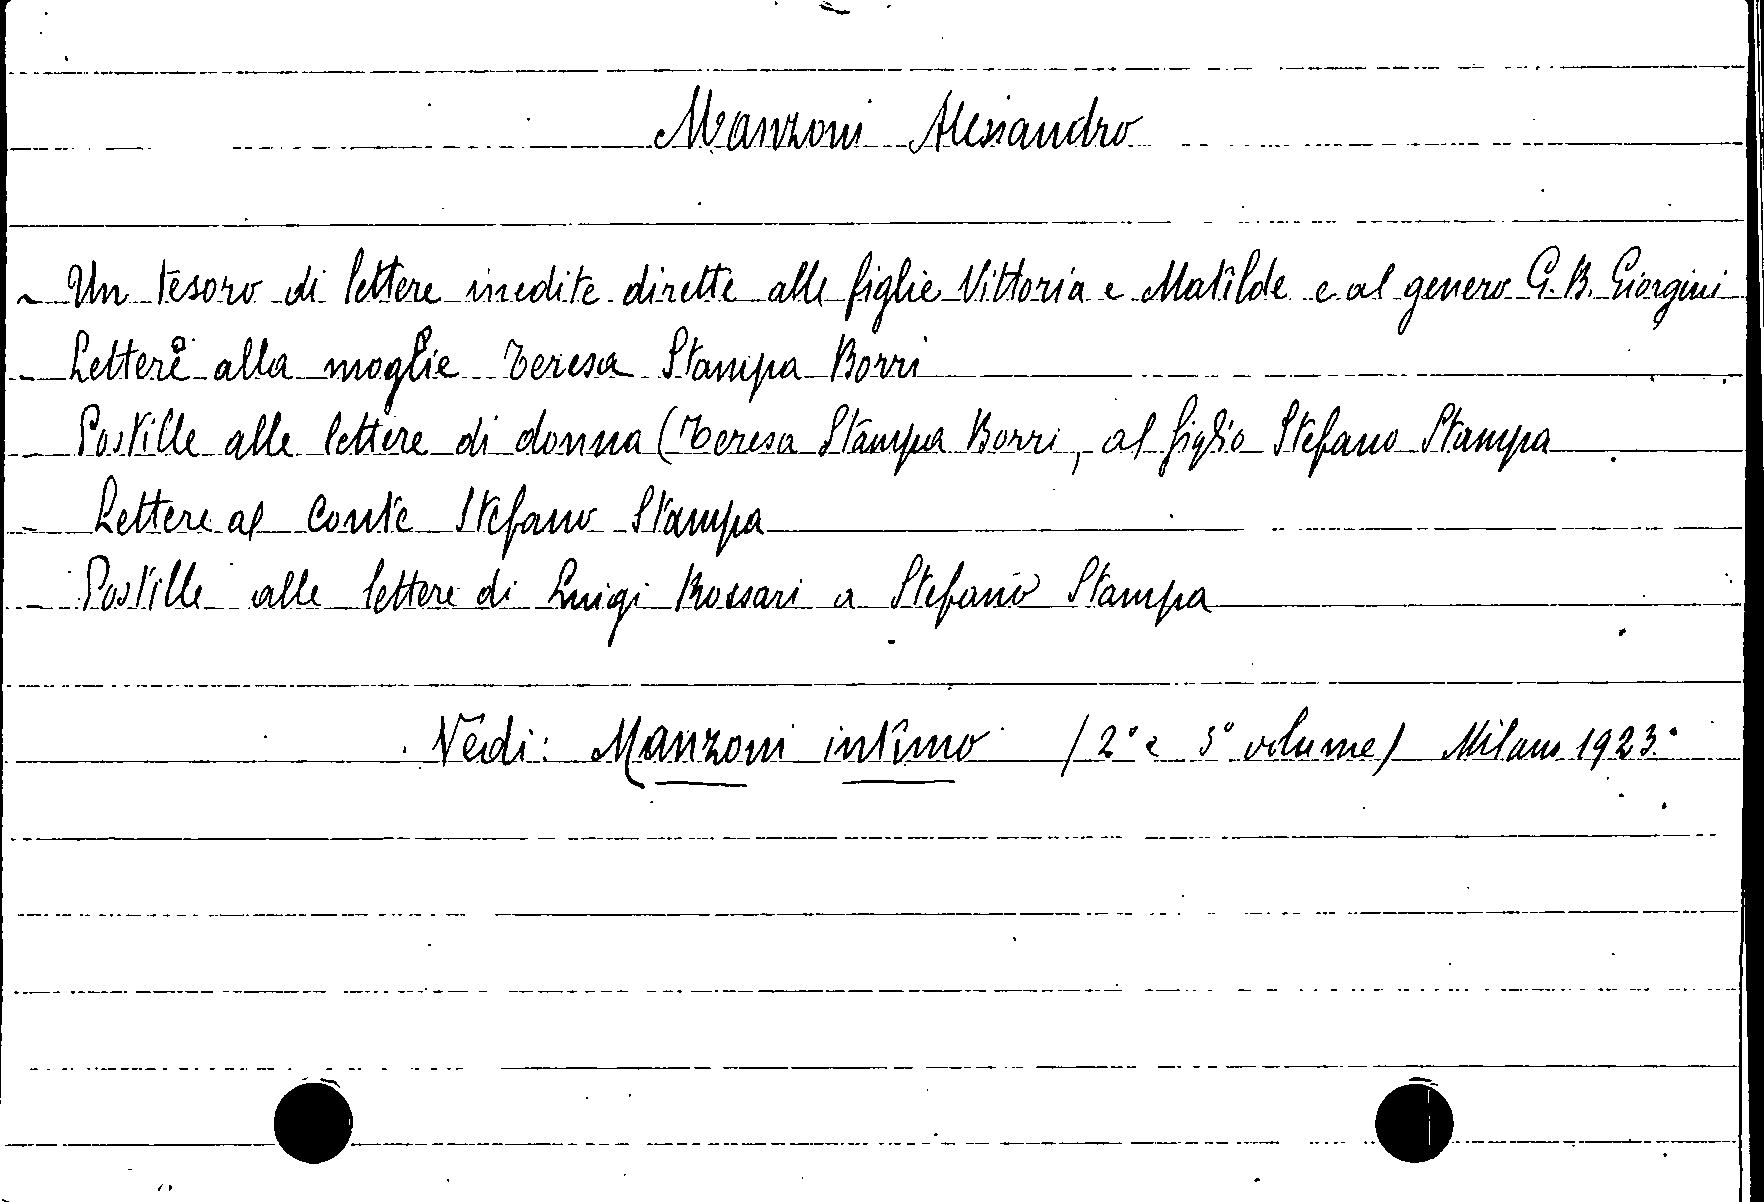 Manzoni Alessandro
- Un tesoro di lettere inedite dirette alle figlie Vittoria e Matilde e al genero G. B. Giorgini
- Lettere alla moglie Teresa Stampa Borri
- Postille alle lettere di donna (Teresa Stampa Borri, al figlio Stefano Stampa
- Lettere al Conte Stefano Stampa
- Postille alle lettere di Luigi Rossari a Stefano Stampa
Vedi: Manzoni intimo (2° e 3° volume) Milano 1923.